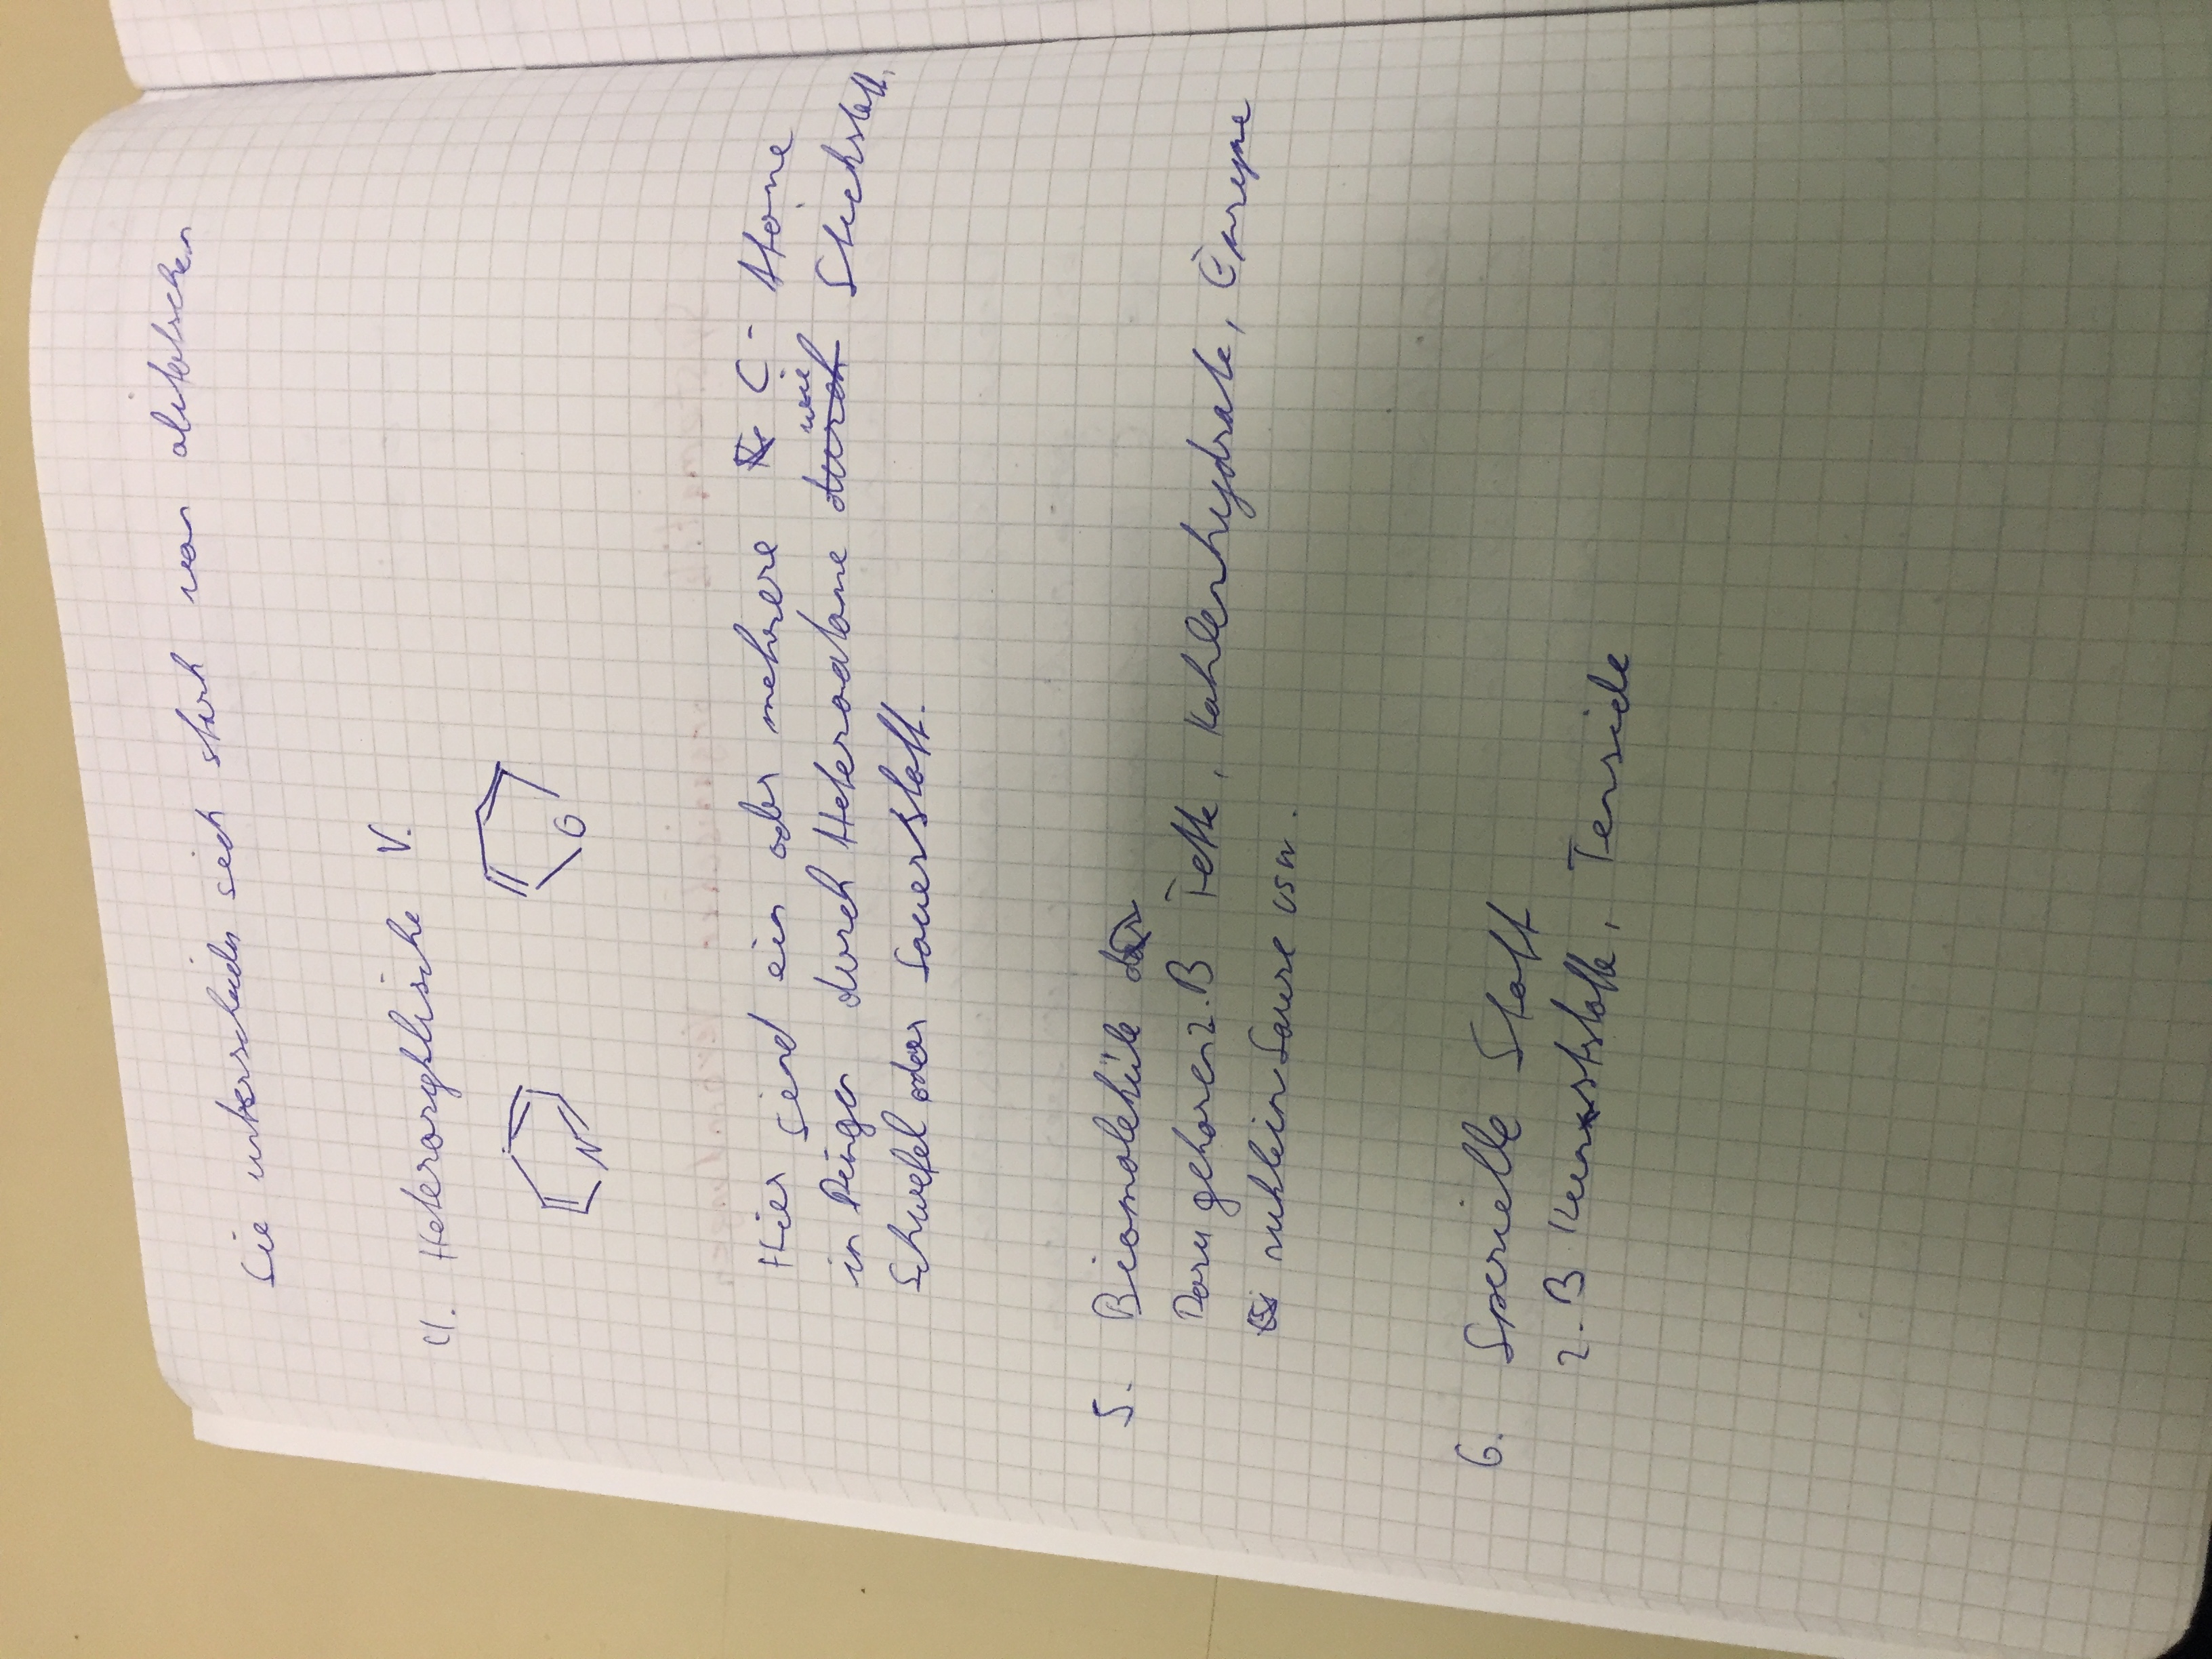 Sie unterscheiden sich stark von
4. Heterozyklische V.
N O
Hier sind ein oder mehrere C - Atome
in Ringen durch Heteroatome wie Stickstoff,
Schwefel oder Sauerstoff.
5. Biomoleküle
Dazu gehoren z.B Fette, Kohlenhydrate, Enzyme
nukleinsaure usw.
6. Spezielle Stoff
z.B Kunststoffe, Tenside